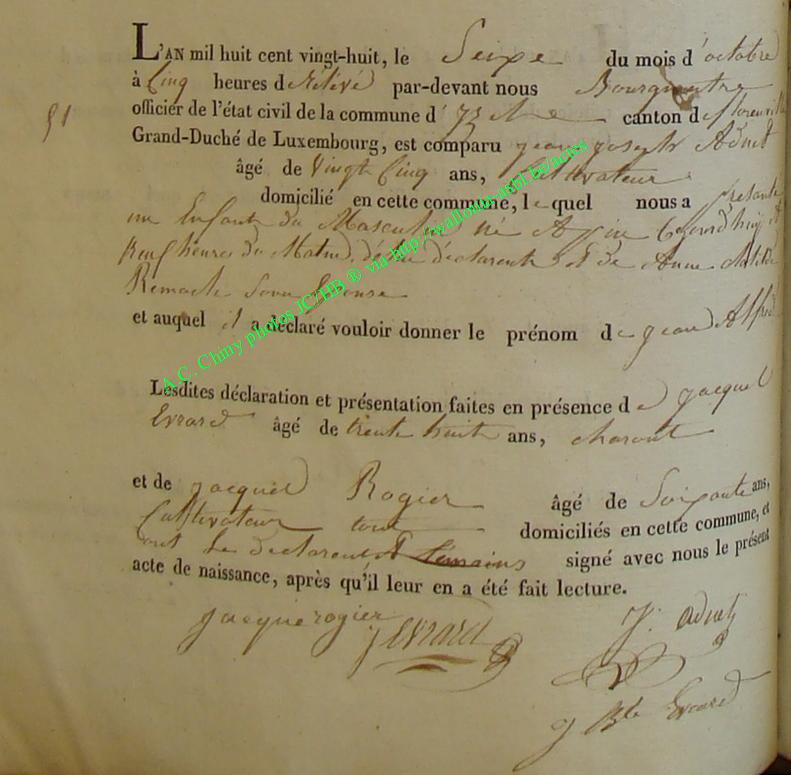 L'AN mil huit cent vingt-huit, le Seize du mois d'octobre
à Cinq heures de Relévé par-devant nous Bourgmestre
officier de l'état civil de la commune d' canton de florenville
51
Grand-Duché de Luxembourg, est comparu jean joseph Adnet
âgé de Vingt Cinq ans, Cultivateur
domicilié en cette commune, lequel nous a présenté
un Enfant du Masculin né Cejourdhuy
neuf heures du Matin, de lui déclarant et de Anne
Remacle Son Epouse
et auquel il a déclaré vouloir donner le prénom de jean Alfred
A.C. Chiny photos JC/HB ® via http://wallonia.dsbl.be/actes
Lesdites déclaration et présentation faites en présence de jacques
Evrard âgé de trente huit ans,
et de jacques Rogier âgé de Soixante ans,
Cultivateur tous domiciliés en cette commune, et
ont Le declarant et témoins signé avec nous le présent
acte de naissance, après qu'il leur en a été fait lecture.
jacque rogier j evrard J. adnet
j Bte Evrard